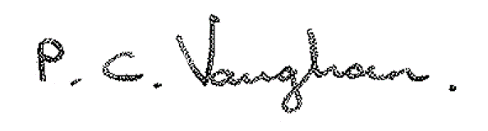 P. C. Vaughan.